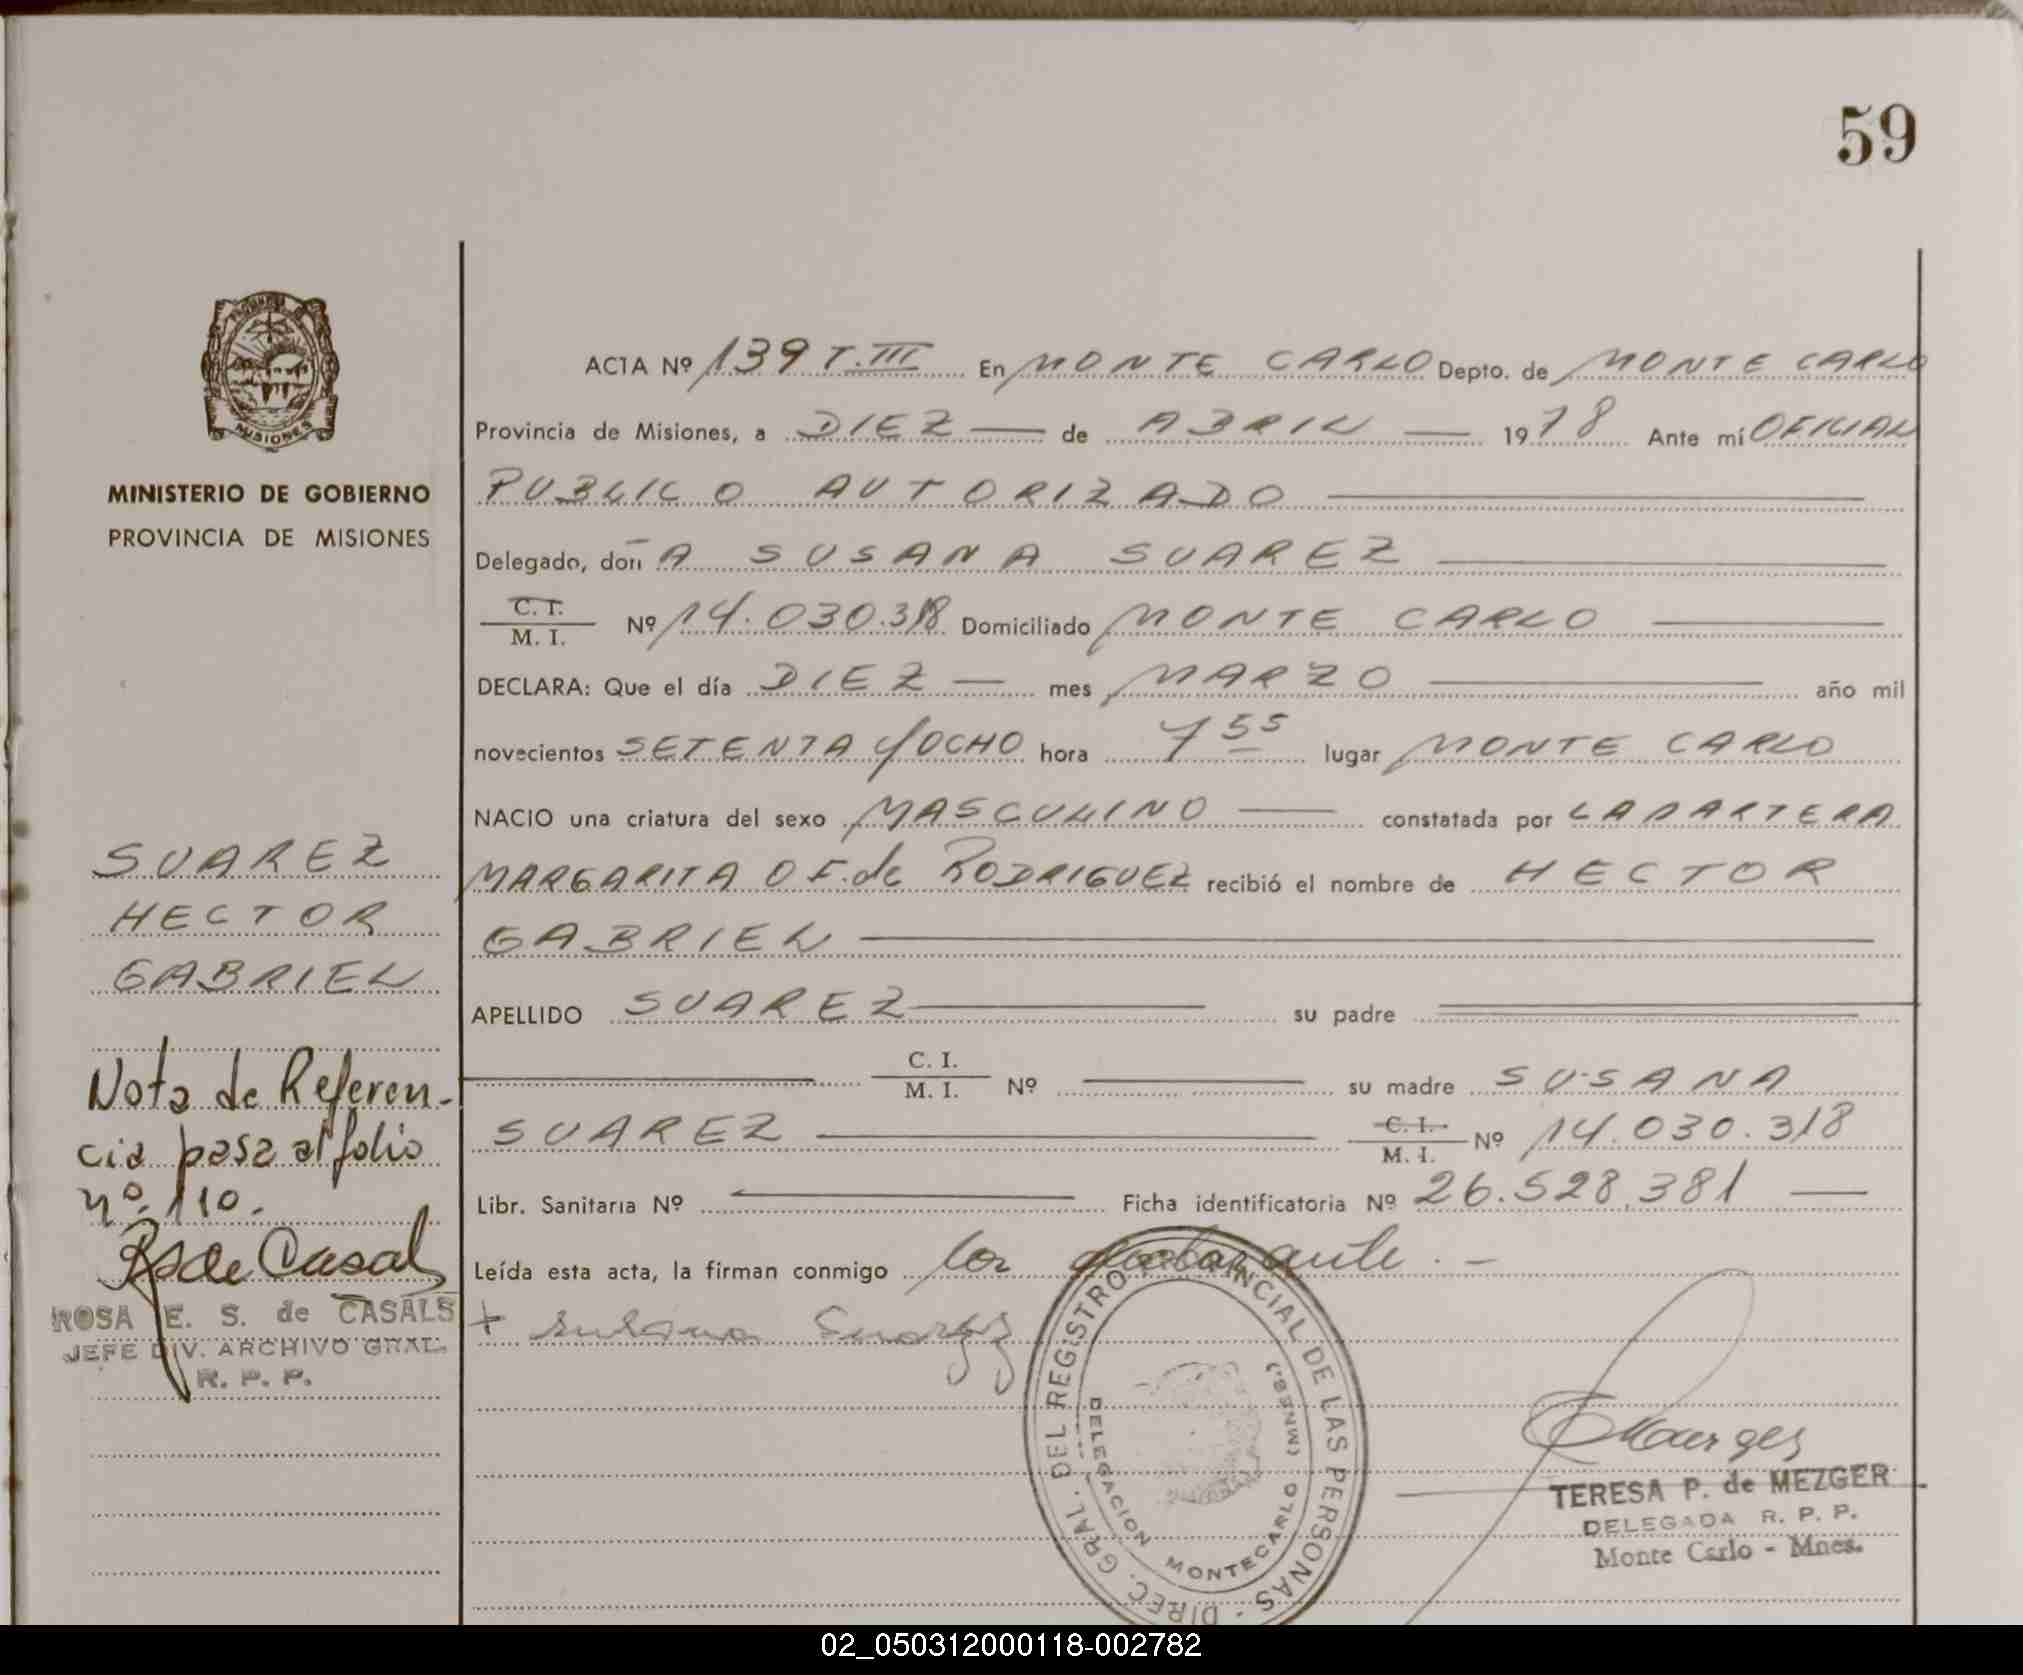 59
ACTA Nº 139 T.III En MONTE CARLO Depto. de MONTE CARLO
Provincia de Misiones, a DIEZ — de ABRIL — 1978 Ante mí OFICIAL
PUBLICO AUTORIZADO
Delegado, don A SUSANA SUAREZ
C. I. / M. I. Nº 14.030.318 Domiciliado MONTE CARLO
DECLARA: Que el día DIEZ — mes MARZO — año mil
novecientos SETENTA Y OCHO hora 7 55 lugar MONTE CARLO
NACIO una criatura del sexo MASCULINO — constatada por LA PARTERA
MARGARITA O F. de RODRIGUEZ recibió el nombre de HECTOR
GABRIEL
APELLIDO SUAREZ — su padre
C. I. / M. I. Nº — su madre SUSANA
SUAREZ — C. I. / M. I. Nº 14.030.318
Libr. Sanitaria Nº — Ficha identificatoria Nº 26.528.381 —
Leída esta acta, la firman conmigo la declarante.-
+ Susana Suarez
MINISTERIO DE GOBIERNO
PROVINCIA DE MISIONES
MISIONES
SUAREZ
HECTOR
GABRIEL
Nota de Referen-
cia pasa al folio
nº. 110.
RSde Casals
ROSA E. S. de CASALS
JEFE DIV. ARCHIVO GRAL.
R. P. P.
DIREC. GRAL. DEL REGISTRO PROVINCIAL DE LAS PERSONAS
DELEGACION MONTECARLO (MNES.)
TERESA P. de MEZGER
DELEGADA R. P. P.
Monte Carlo - Mnes.
02_050312000118-002782